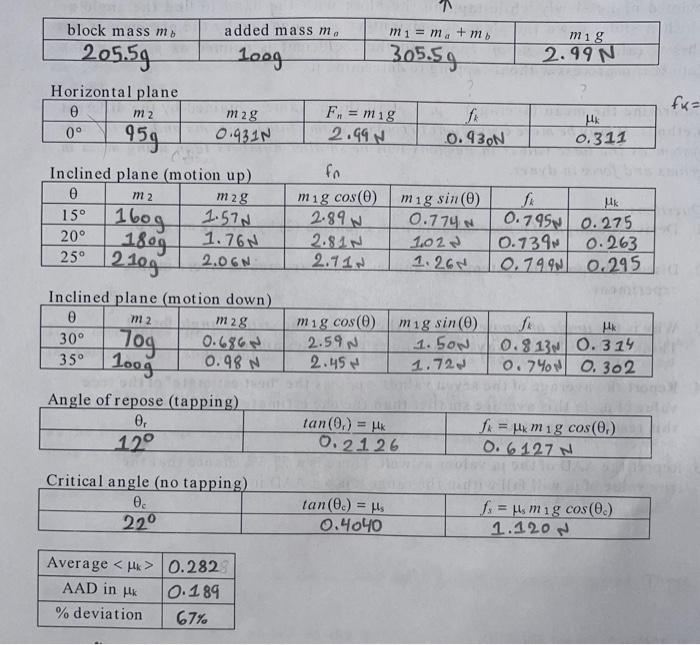 block mass m b added mass m a m 1 = m a + m b m 1 g
205.5g 100g 305.5g 2.99 N
Horizontal plane
θ m 2 m 2 g F n = m 1 g fk μk
fk=
0° 95g 0.931N 2.99 N 0.930N 0.311
Inclined plane (motion up) fn
θ m 2 m 2 g m 1 g cos(θ) m 1 g sin(θ) fk μk
15° 160g 1.57N 2.89 N 0.774 N 0.795N 0.275
20° 180g 1.76N 2.81N 1.02N 0.739N 0.263
25° 210g 2.06N 2.71N 1.26N 0.799N 0.295
Inclined plane (motion down)
θ m 2 m 2 g m 1 g cos(θ) m 1 g sin(θ) fk μk
30° 70g 0.686N 2.59 N 1.50N 0.813N 0.314
35° 100g 0.98 N 2.45 N 1.72N 0.740N 0.302
Angle of repose (tapping)
θr tan(θr) = μk fk = μk m 1 g cos(θr)
12° 0.2126 0.6127 N
Critical angle (no tapping)
θc tan(θc) = μs fs = μs m 1 g cos(θc)
22° 0.4040 1.120 N
Average < μk > 0.282
AAD in μk 0.189
% deviation 67%